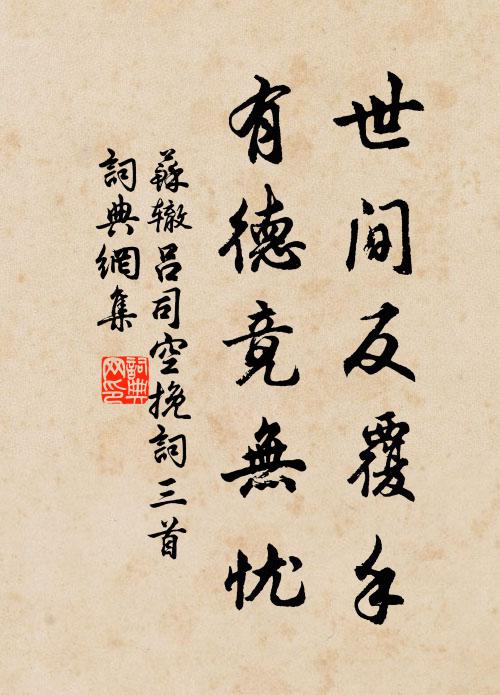 世间反覆手
有德竟無忧
蘇辙吕司空挽詞三首
詞典網集
詞典网印